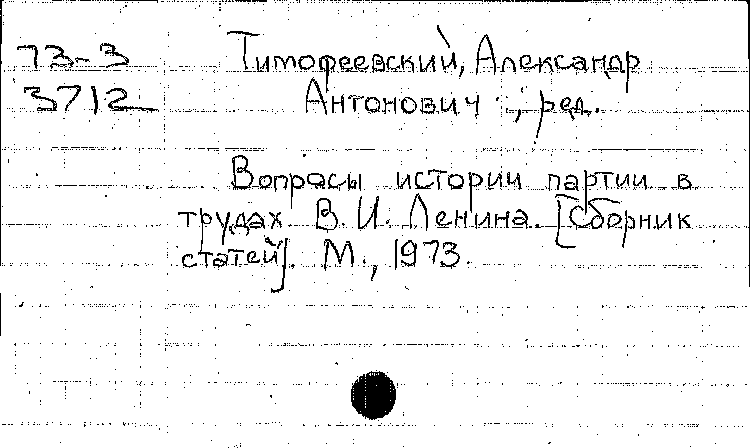 73-3 Тимофеевский, Александр
3712 Антонович, ред.
Вопросы истории партии в
трудах В. И. Ленина. [Сборник
статей]. М., 1973.